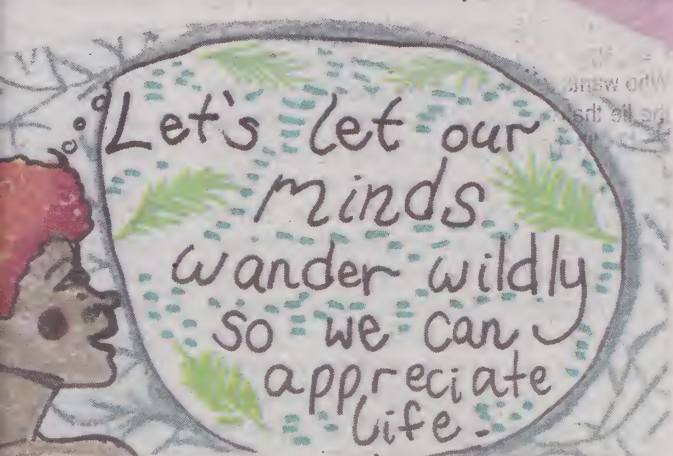 Let's let our
minds
wander wildly
so we can
appreciate
life.